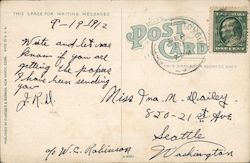 THIS SPACE FOR WRITING MESSAGES
9-19-1912
POST CARD
Write and let me
know if you are
getting the papers
I have been sending
you
J.R.H.
Miss Ina M. Dailey
820-21st Ave
Seattle
Washington
c/o W.G. Robinson